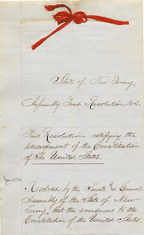 State of New Jersey,
Assembly Joint Resolution No 1.
Joint Resolution ratifying the
amendment of the Constitution
of the United States.
Resolved by the Senate & General
Assembly of the State of New
Jersey, that the amendment to the
Constitution of the United States